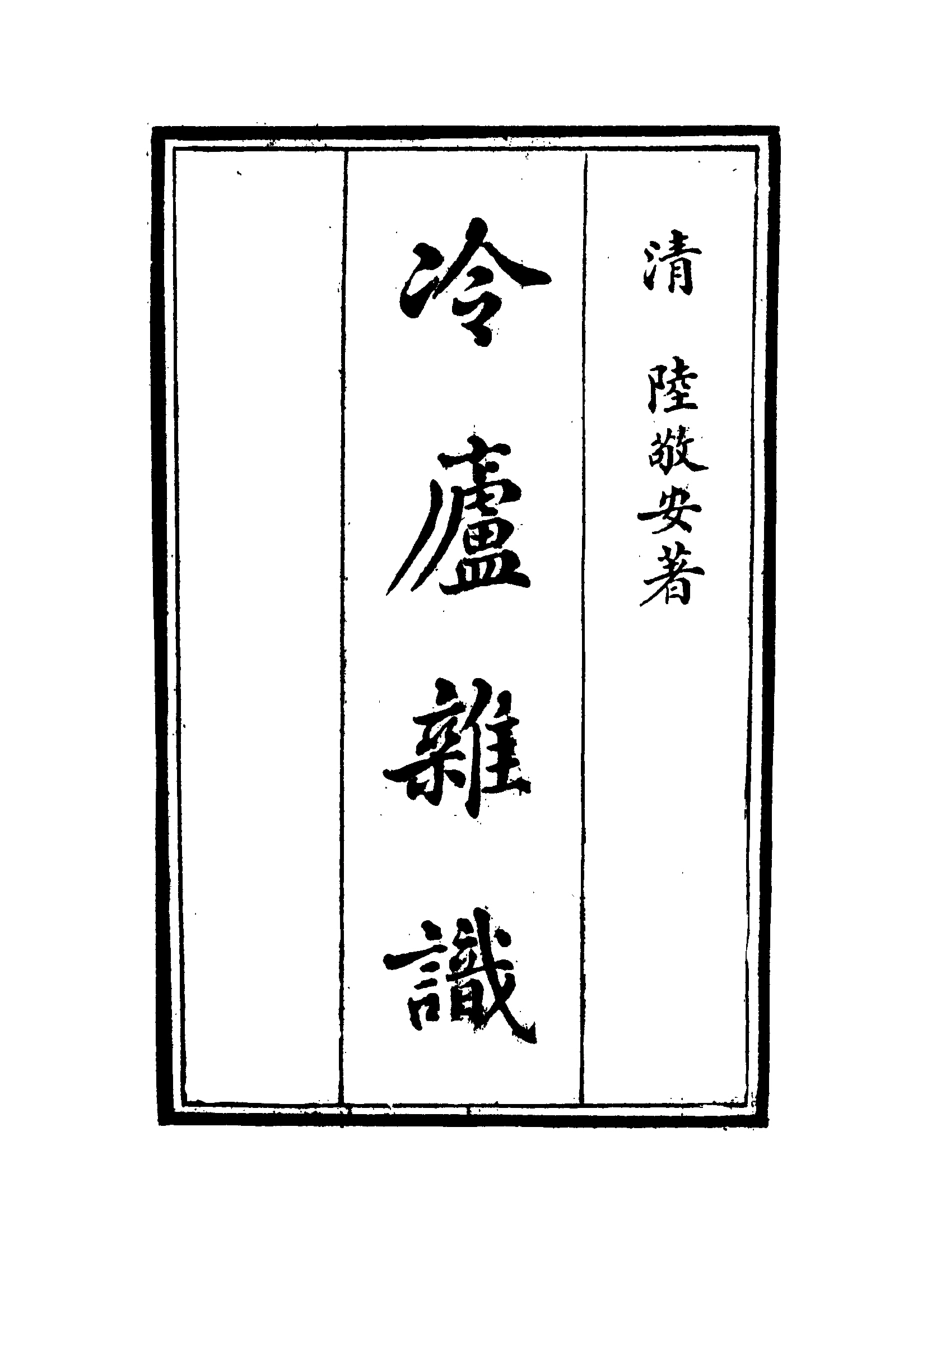 清　陸敬安著
冷廬雜識